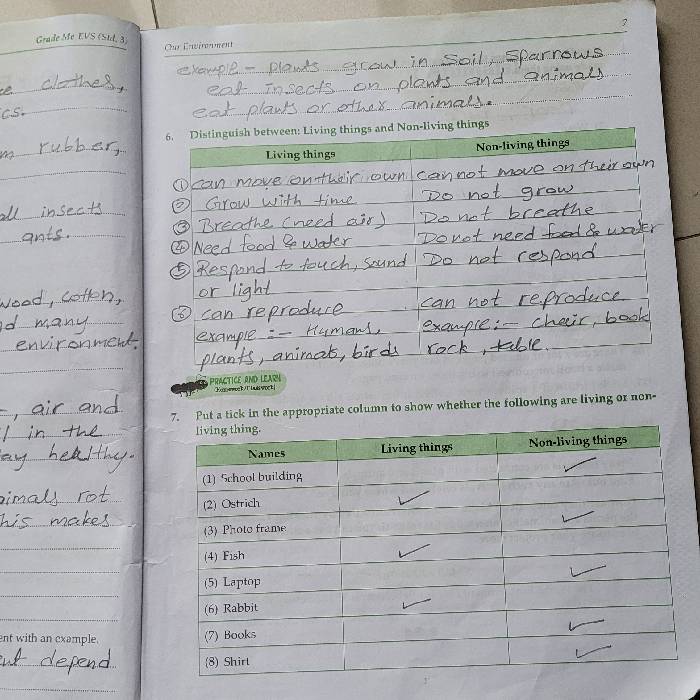 Grade Me EVS (Std. 3)
clothes,
cs.
rubber,
all insects
ants.
wood, cotton,
d many
environment.
, air and
l in the
ay healthy.
nimals rot
his makes
ent with an example.
ut depend
Our Environment
7
example - plants grow in soil, sparrows
eat insects on plants and animals
eat plants or other animals.
6. Distinguish between: Living things and Non-living things
Living things Non-living things
① can move on their own can not move on their own
② Grow with time Do not grow
③ Breathe (need air) Do not breathe
④ Need food & water Do not need food & water
⑤ Respond to touch, sound Do not respond
or light
⑥ can reproduce can not reproduce
example :- Humans, example :- chair, book
plants, animals, birds rock, table.
PRACTICE AND LEARN
7. Put a tick in the appropriate column to show whether the following are living or non-
living thing.
Names Living things Non-living things
(1) School building ✓
(2) Ostrich ✓
(3) Photo frame ✓
(4) Fish ✓
(5) Laptop ✓
(6) Rabbit ✓
(7) Books ✓
(8) Shirt ✓